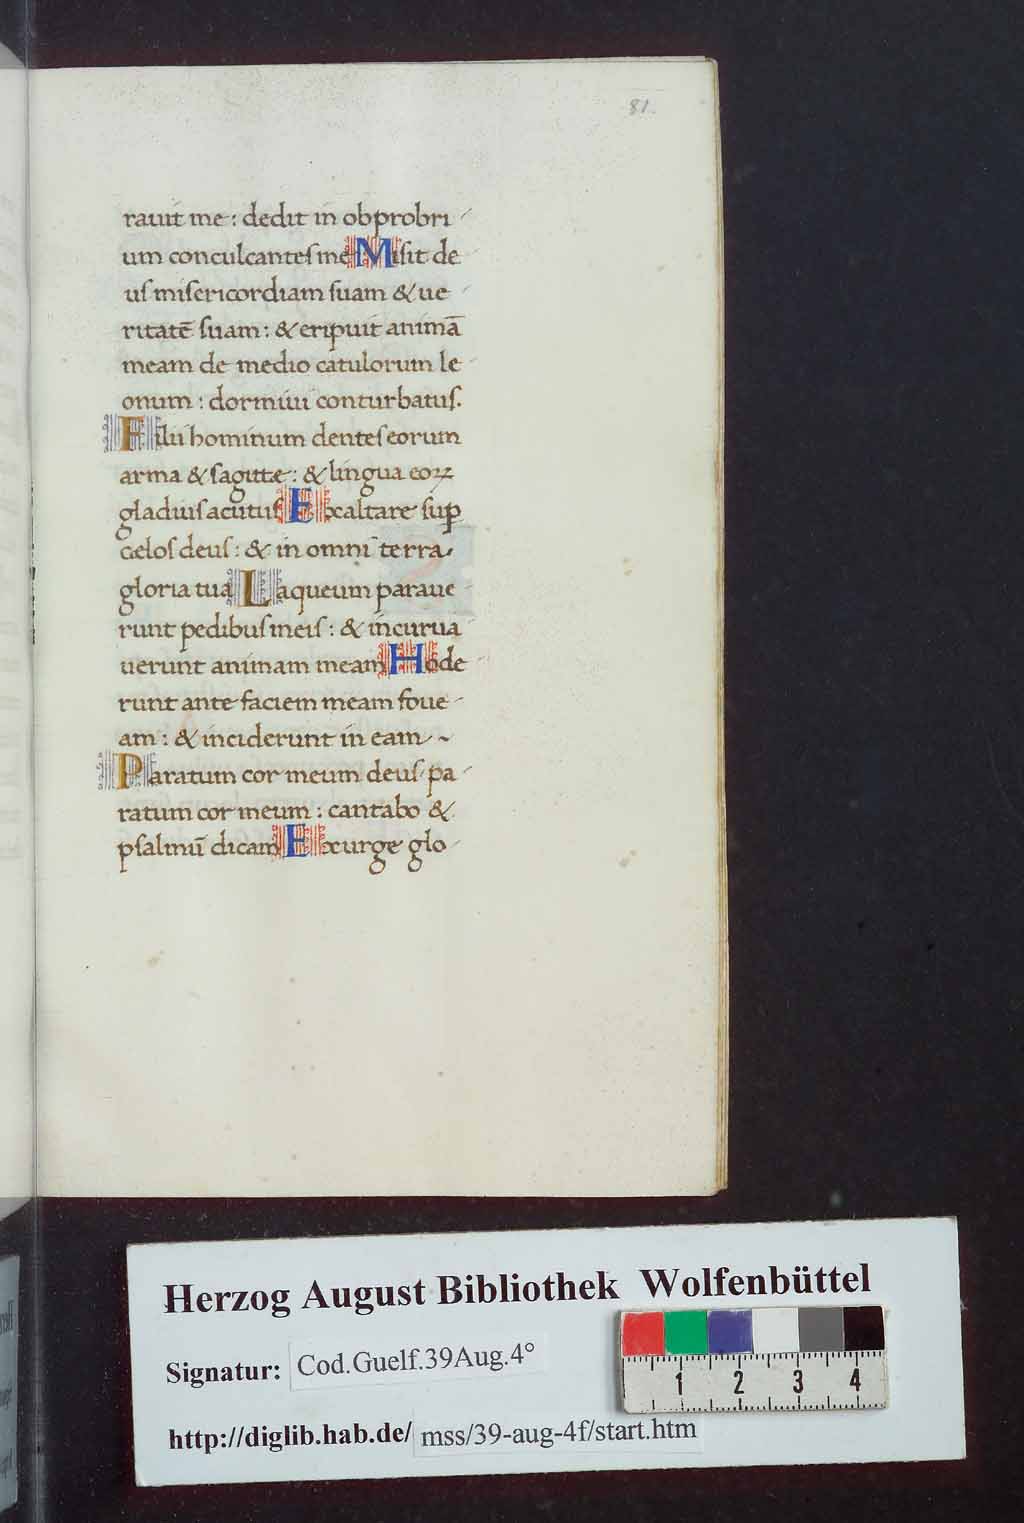 81.
rauit me : dedit in obprobri
um conculcantes me Misit de
us misericordiam suam & ue
ritatē suam : & eripuit animā
meam de medio catulorum le
onum : dormiui conturbatus.
Filii hominum dentes eorum
arma & sagitte : & lingua eoꝝ
gladius acutus Exaltare suꝑ
celos deus : & in omni terra
gloria tua Laqueum paraue
runt pedibus meis : & incurua
uerunt animam meam Hode
runt ante faciem meam foue
am : & inciderunt in eam ~
Paratum cor meum deus pa
ratum cor meum : cantabo &
psalmū dicam Exurge glo
Herzog August Bibliothek Wolfenbüttel
Signatur: Cod.Guelf.39Aug.4°
http://diglib.hab.de/ mss/39-aug-4f/start.htm
1 2 3 4